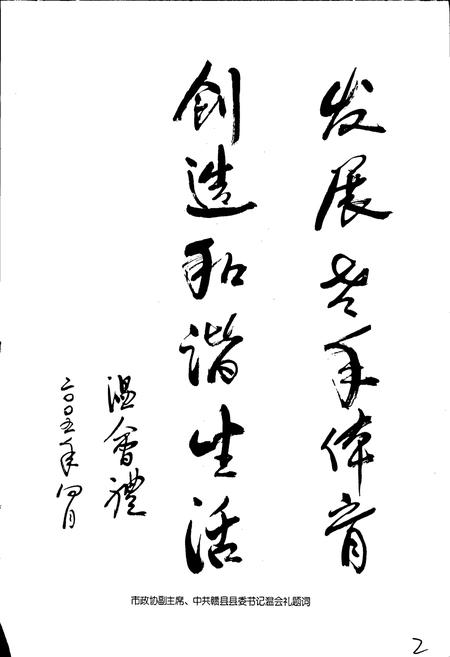 发展老年体育
创造和谐生活
温會禮
二〇〇五年四月
市政协副主席、中共赣县县委书记温会礼题词
2